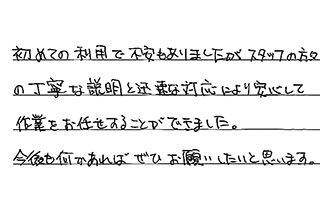 初めての利用で不安もありましたがスタッフの方々
の丁寧な説明と迅速な対応により安心して
作業をお任せすることができました。
今後も何かあればぜひお願いしたいと思います。